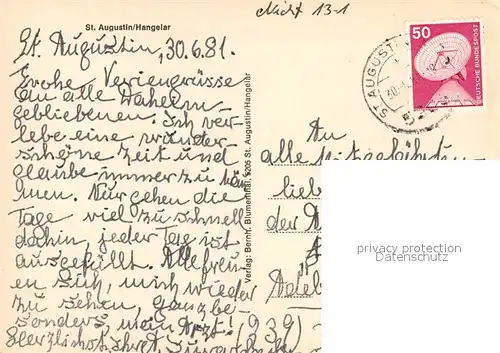 St. Augustin/Hangelar
St. Augustin, 30.6.81.
Frohe Feriengrüsse
an alle Daheim-
gebliebenen. Ich ver-
lebe eine wunder-
schöne Zeit und
glaube immer zu träu-
men. Nur gehen die
Tage viel zu schnell
dahin, jeder Tag ist
ausgefüllt. Alle freu-
en sich, mich wieder
zu sehen, ganz be-
sonders, mein Arzt!
Herzlichst Ihre
Verlag: Bernh. Blumenthal, 5205 St. Augustin/Hangelar
13-1
ST AUGUSTIN
50
DEUTSCHE BUNDESPOST
An
alle
lieb
der
Adel
(939)
privacy protection
Datenschutz